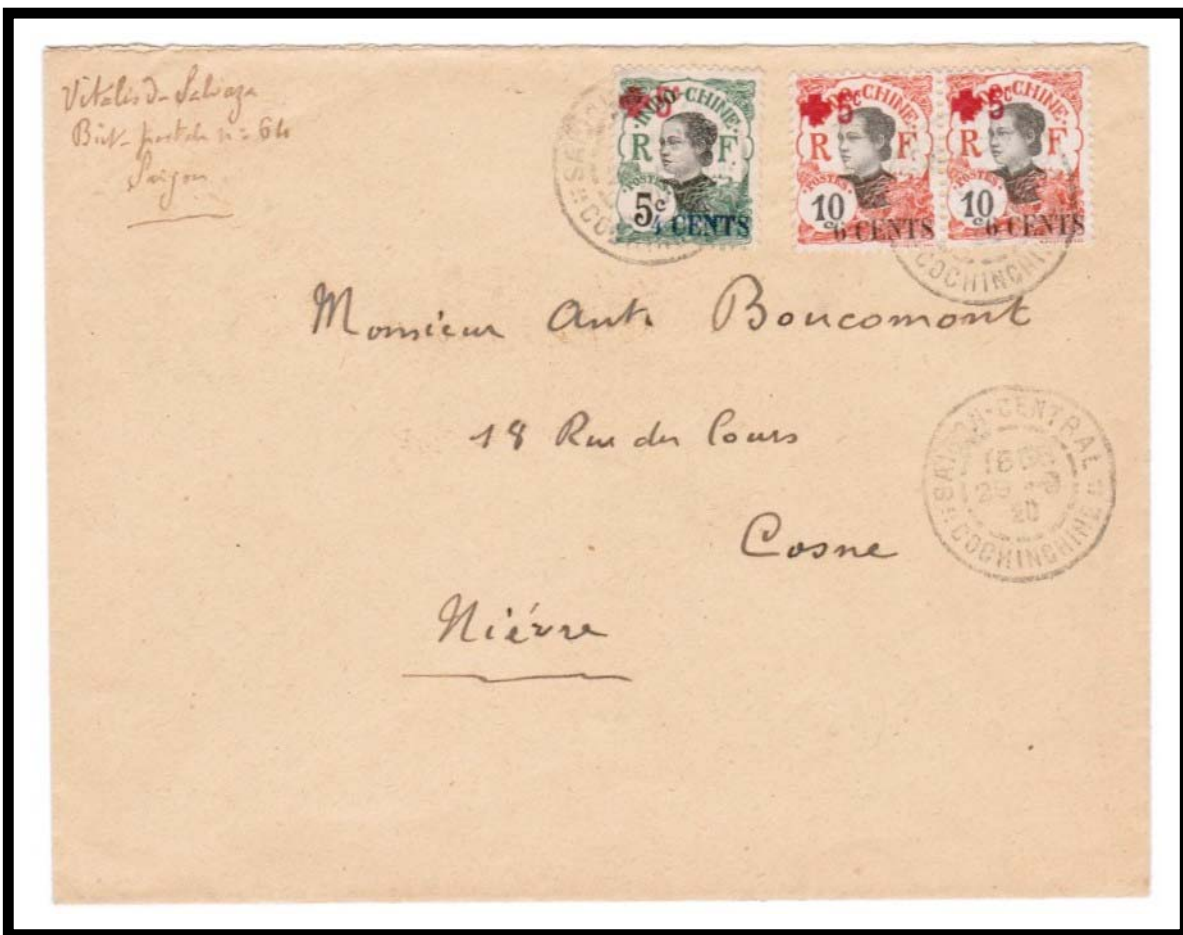 Vitalis de Salvaza
Boit. postale n° 64
Saigon
5c
INDO-CHINE
R F
POSTES
5c
4 CENTS
5c
CHINE
R F
POSTES
10c
6 CENTS
5c
CHINE
R F
POSTES
10c
6 CENTS
COCHINCHI
Monsieur Ant. Boucomont
18 Rue des Cours
Cosne
Nièvre
SAIGON-CENTRAL
20
COCHINCHINE